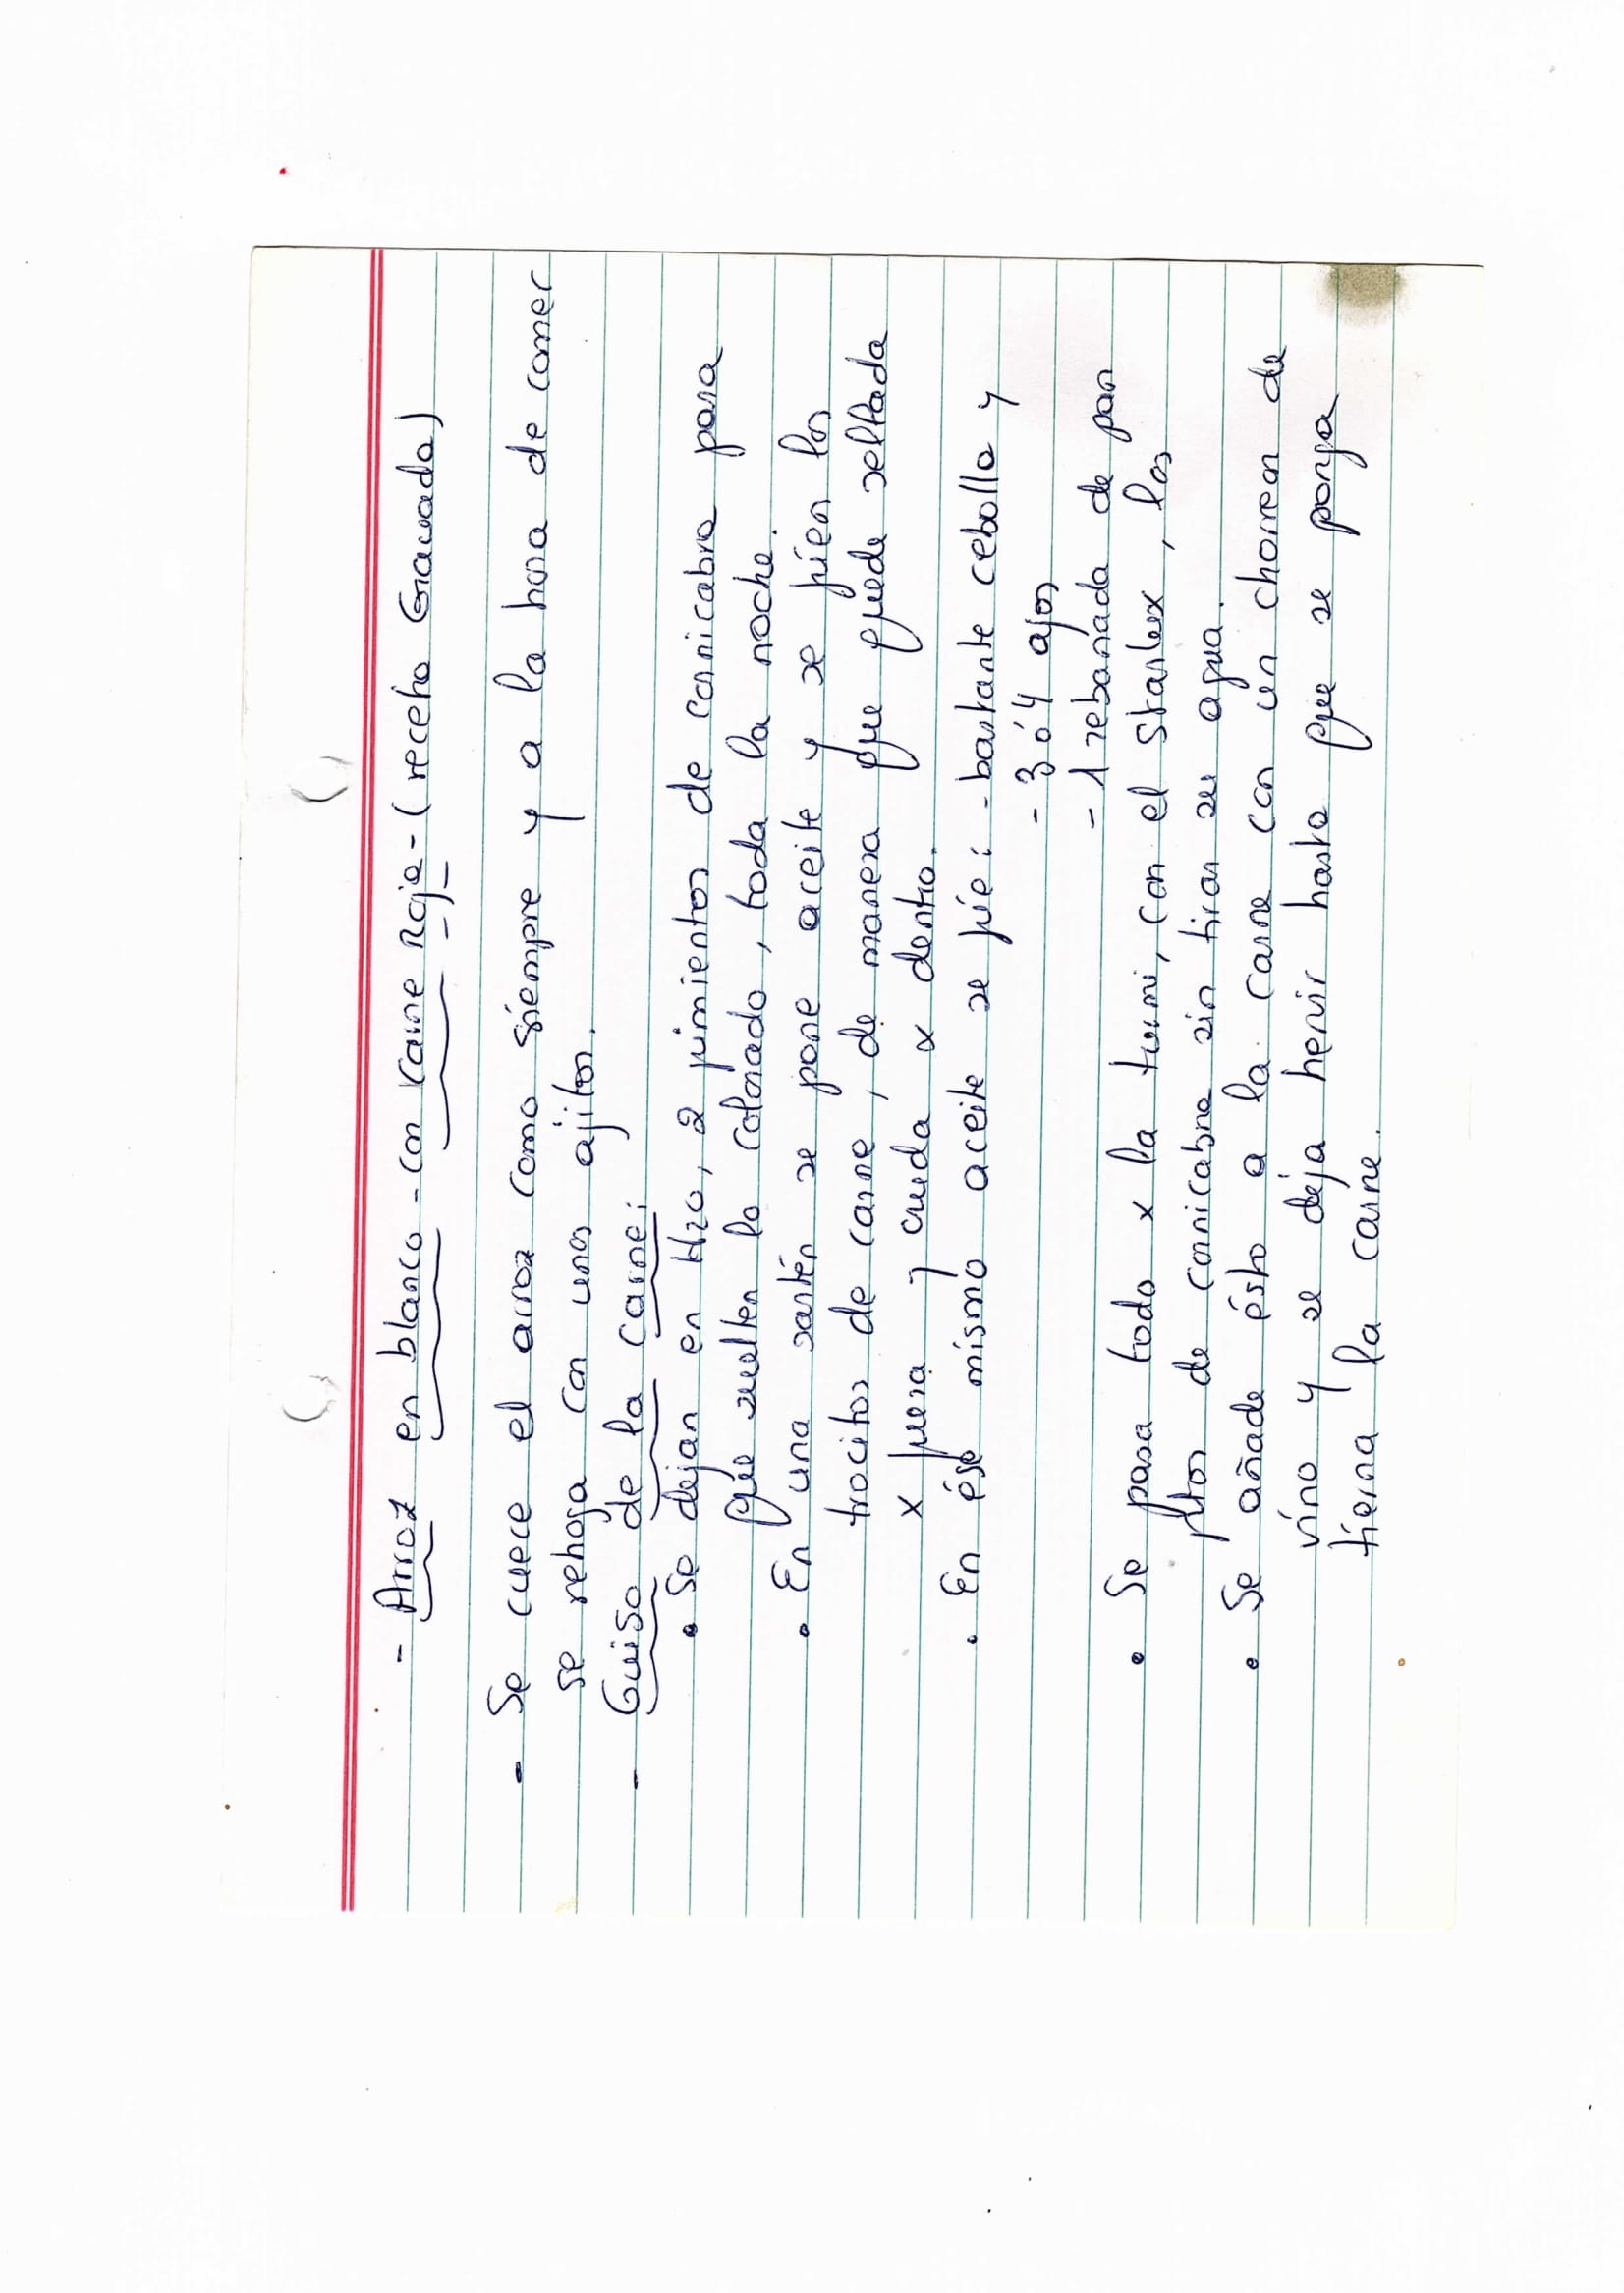 - Arroz en blanco - con carne Roja - (receta Granada)
- Se cuece el arroz como siempre y a la hora de comer
se rehoga con unos ajitos.
- Guiso de la carne:
• Se dejan en H2O, 2 pimientos de cornicabra para
que suelten lo colorado, toda la noche.
• En una sartén se pone aceite y se fríen los
trocitos de carne, de manera que quede sellada
x fuera y cruda x dentro.
• En ése mismo aceite se fríe: - bastante cebolla y
- 3 ó 4 ajos
- 1 rebanada de pan
• Se pasa todo x la turmi, con el starlux, los
ptos de cornicabra sin tirar su agua.
• Se añade ésto a la carne con un chorreon de
vino y se deja hervir hasta que se ponga
tierna la carne.